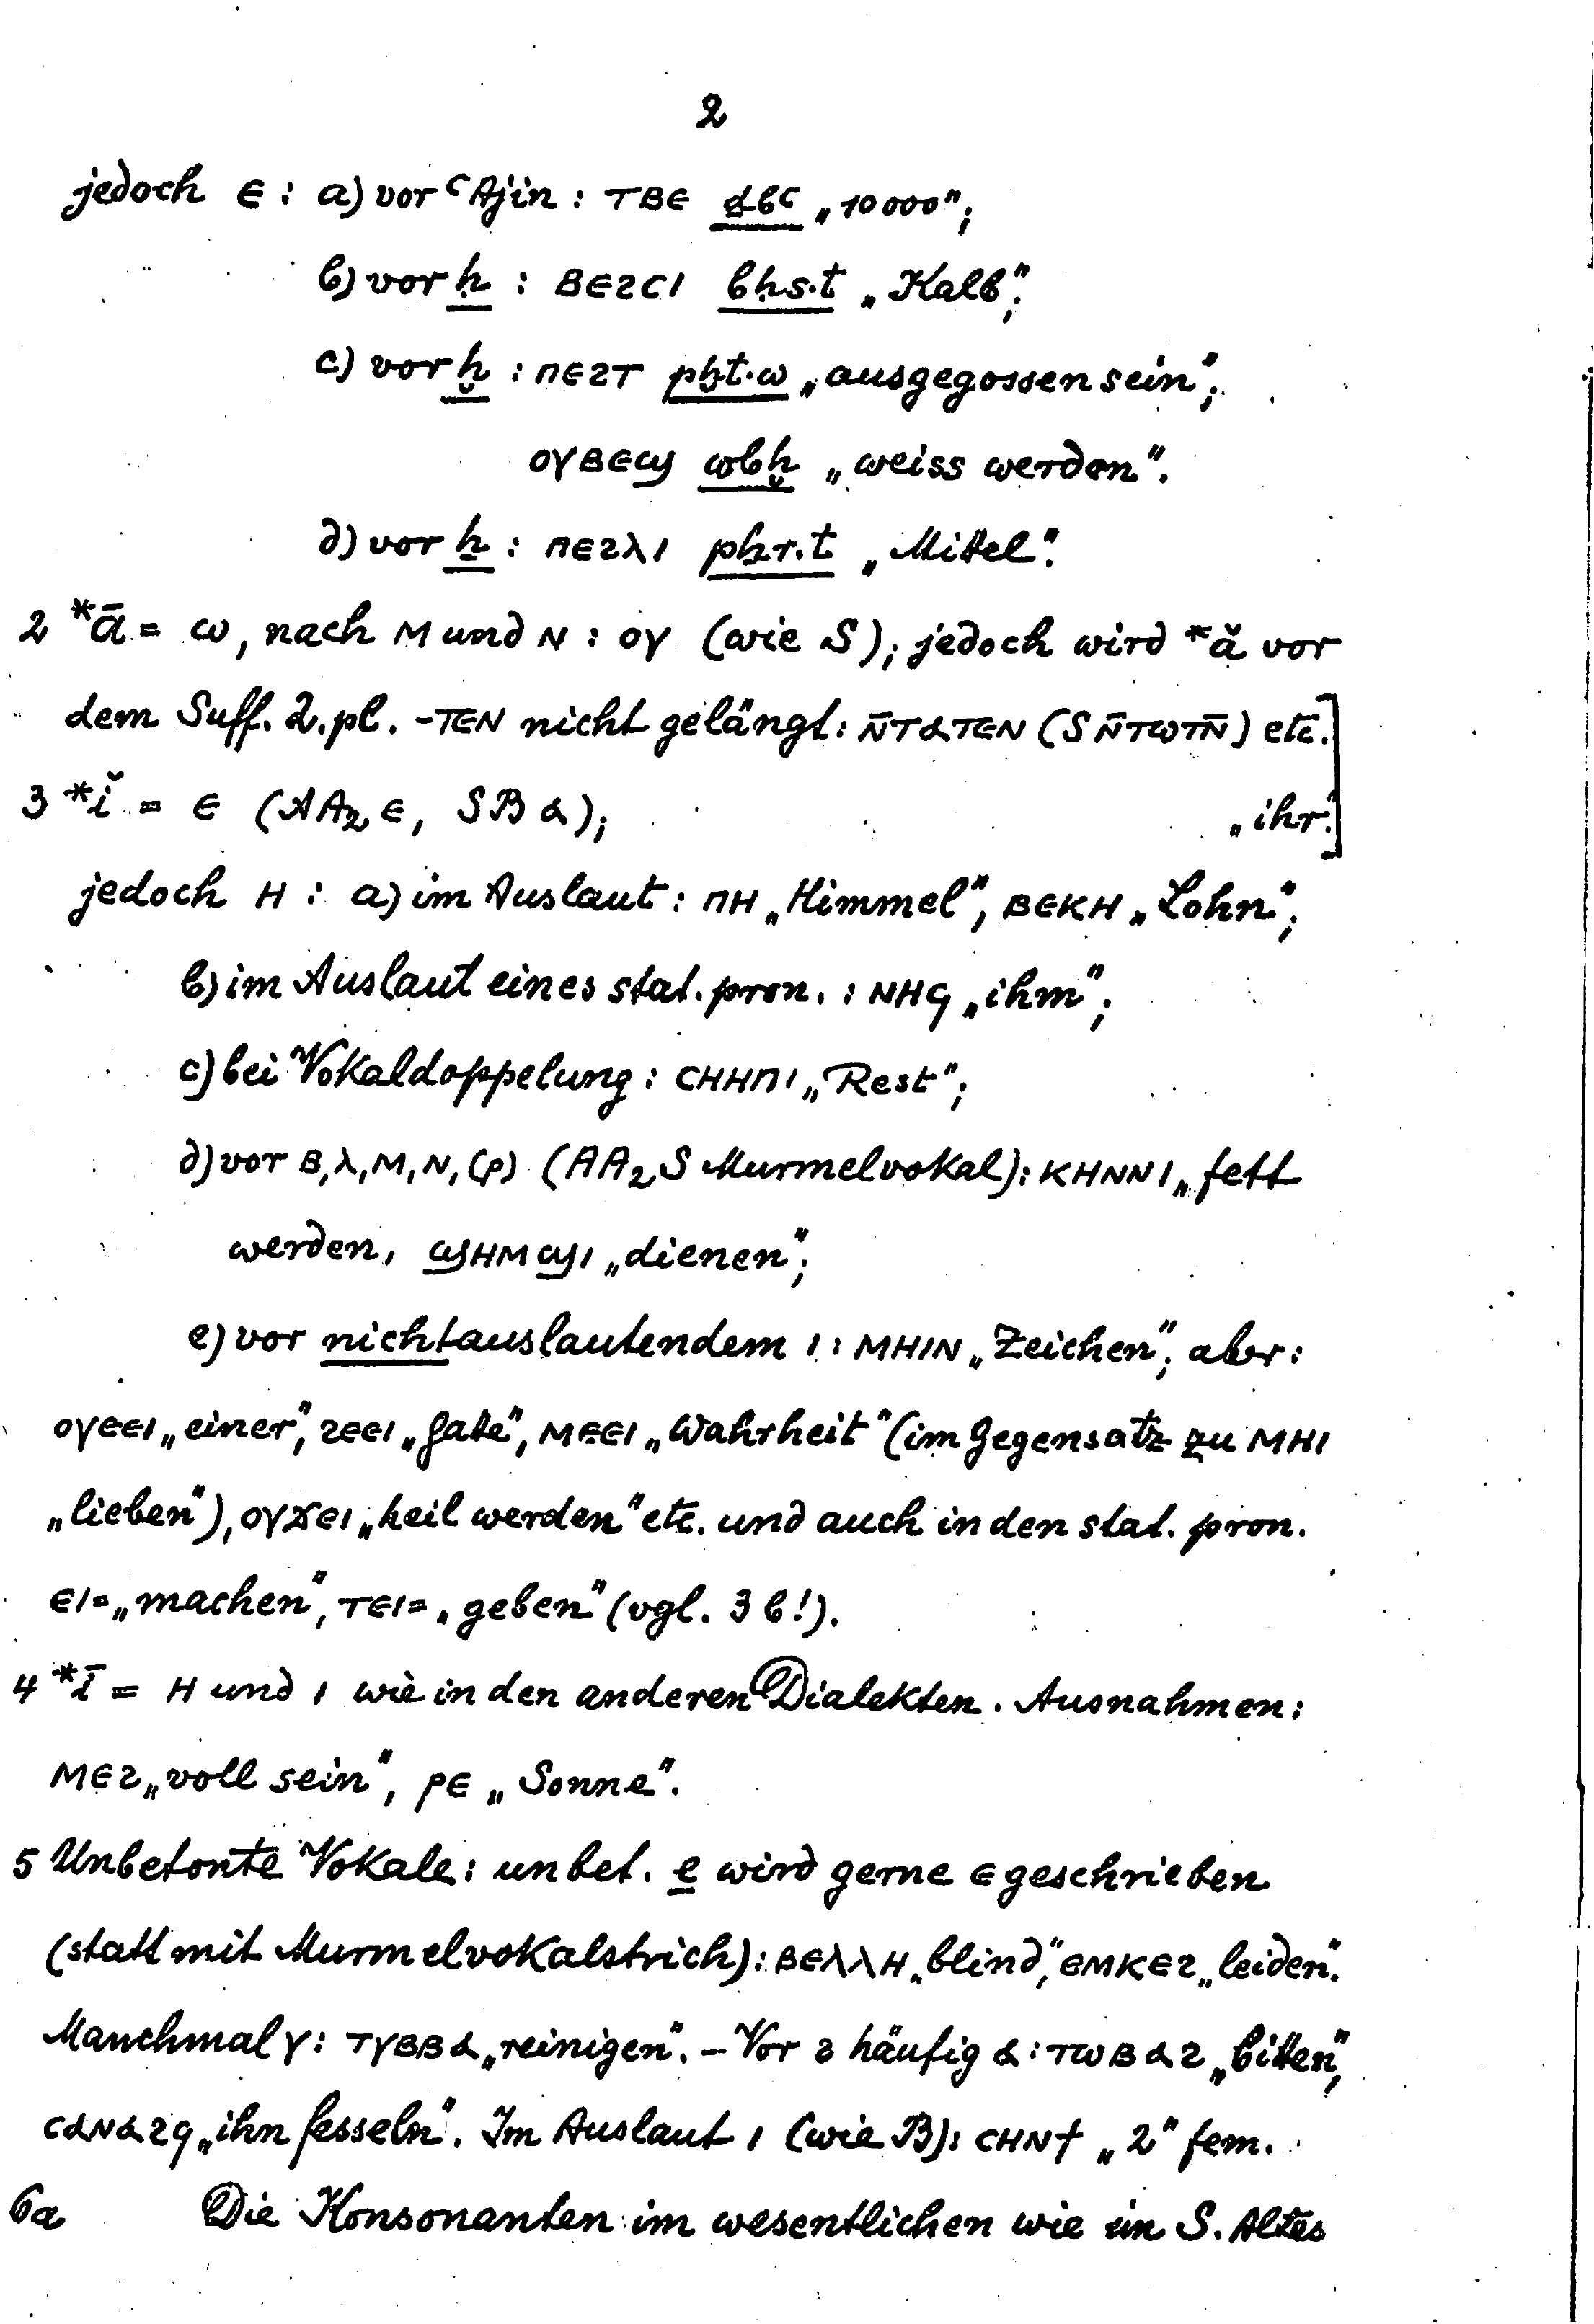 2
jedoch ⲉ : a) vor ꜥAjin : ⲧⲃⲉ ḏbꜥ „10000";
b) vor ḥ : ⲃⲉϩⲥⲓ bḥs.t „Kalb";
c) vor ḫ : ⲡⲉϩⲧ pḫt.w „ausgegossen sein";
ⲟⲩⲃⲉϣ wbḫ „weiss werden".
d) vor ẖ : ⲡⲉϩⲗⲓ pẖr.t „Mittel".
2 *ā = ⲱ, nach ⲙ und ⲛ : ⲟⲩ (wie S); jedoch wird *ă vor
dem Suff. 2.pl. -ⲧⲉⲛ nicht gelängt: ⲛ̄ⲧⲁⲧⲉⲛ (S ⲛ̄ⲧⲱⲧⲛ̄) etc.]
3 *ĭ = ⲉ (AA₂ ⲉ, SB ⲁ); „ihr".]
jedoch ⲏ : a) im Auslaut : ⲡⲏ „Himmel", ⲃⲉⲕⲏ „Lohn";
b) im Auslaut eines stat. pron. : ⲛⲏϥ „ihm";
c) bei Vokaldoppelung : ⲥⲏⲏⲡⲓ „Rest";
d) vor ⲃ, ⲗ, ⲙ, ⲛ, (ⲣ) (AA₂S Murmelvokal): ⲕⲏⲛⲛⲓ „fett
werden, ϣⲏⲙϣⲓ „dienen";
e) vor nichtauslautendem ⲓ : ⲙⲏⲓⲛ „Zeichen"; aber:
ⲟⲩⲉⲉⲓ „einer", ϩⲉⲉⲓ „Gatte", ⲙⲉⲉⲓ „Wahrheit" (im Gegensatz zu ⲙⲏⲓ
„lieben"), ⲟⲩϫⲉⲓ „heil werden" etc. und auch in den stat. pron.
ⲉⲓ= „machen", ⲧⲉⲓ= „geben" (vgl. 3 b!).
4 *ī = ⲏ und ⲓ wie in den anderen Dialekten. Ausnahmen:
ⲙⲉϩ „voll sein", ⲣⲉ „Sonne".
5 Unbetonte Vokale: unbet. e wird gerne ⲉ geschrieben
(statt mit Murmelvokalstrich): ⲃⲉⲗⲗⲏ „blind", ⲉⲙⲕⲉϩ „leiden".
Manchmal ⲩ: ⲧⲩⲃⲃⲁ „reinigen". – Vor ϩ häufig ⲁ: ⲧⲱⲃⲁϩ „bitten",
ⲥⲁⲛⲁϩϥ „ihn fesseln". Im Auslaut ⲓ (wie B): ⲥⲏⲛϯ „2" fem.
6a Die Konsonanten im wesentlichen wie im S. Altes